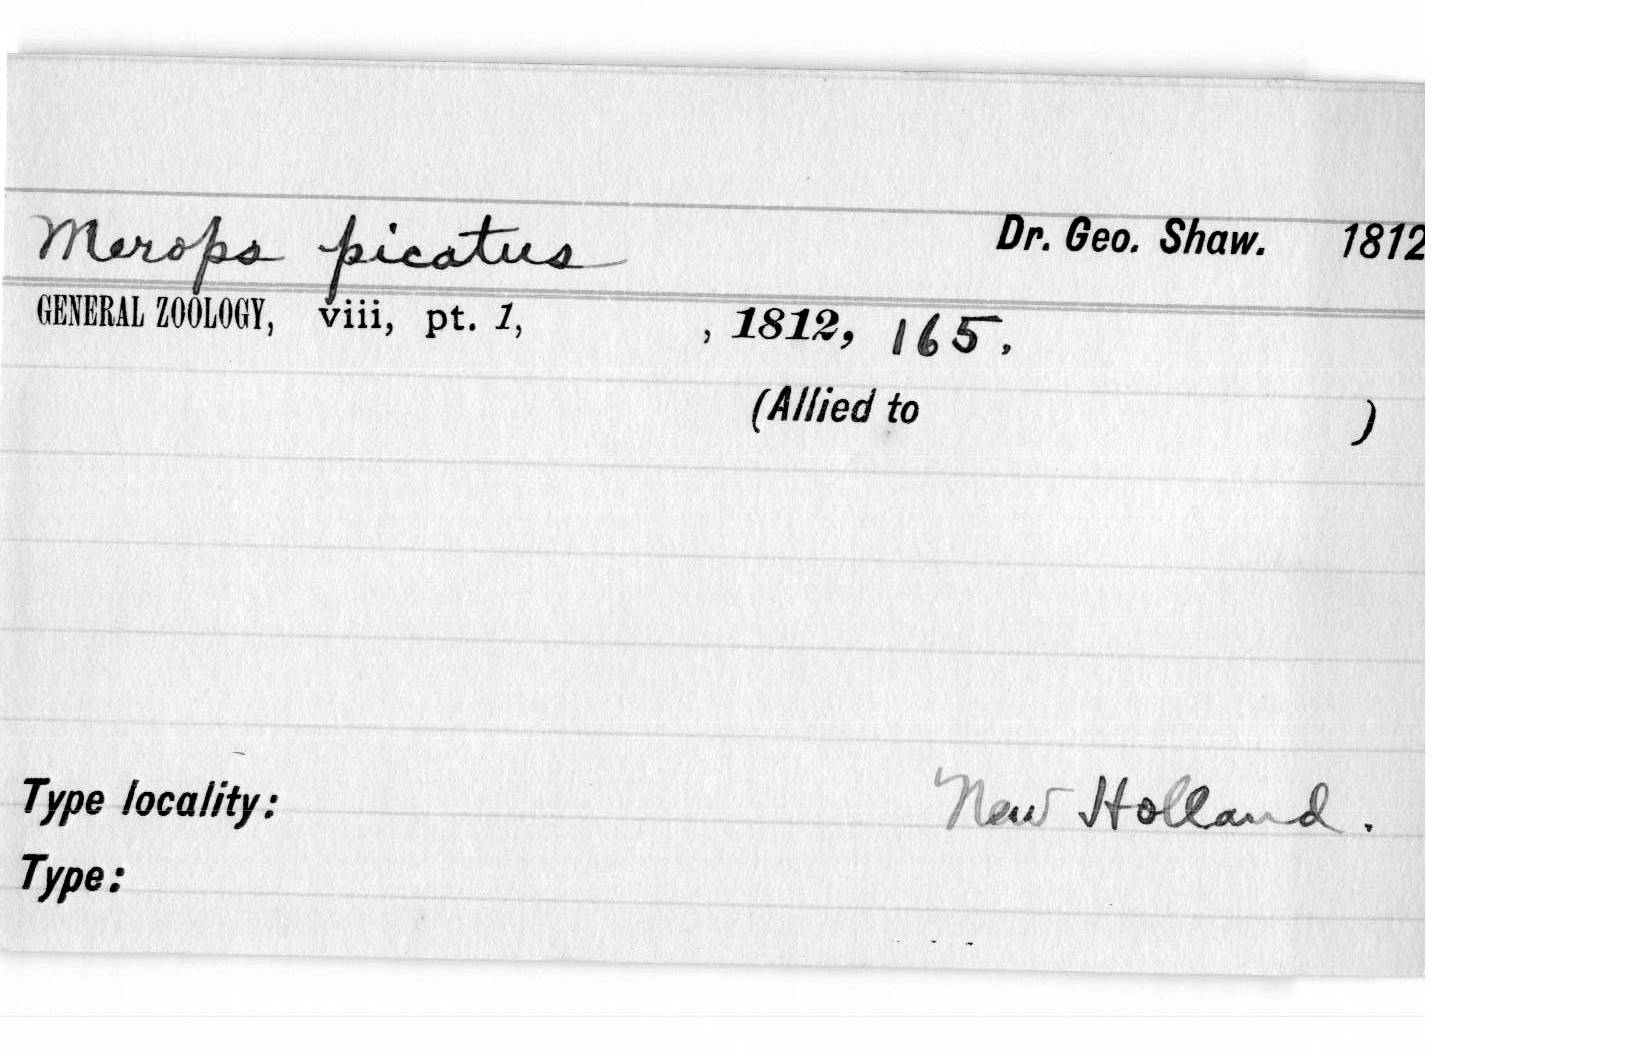 Merops picatus Dr. Geo. Shaw. 1812
GENERAL ZOOLOGY, viii, pt. 1, , 1812, 165.
(Allied to )
Type locality: New Holland.
Type: